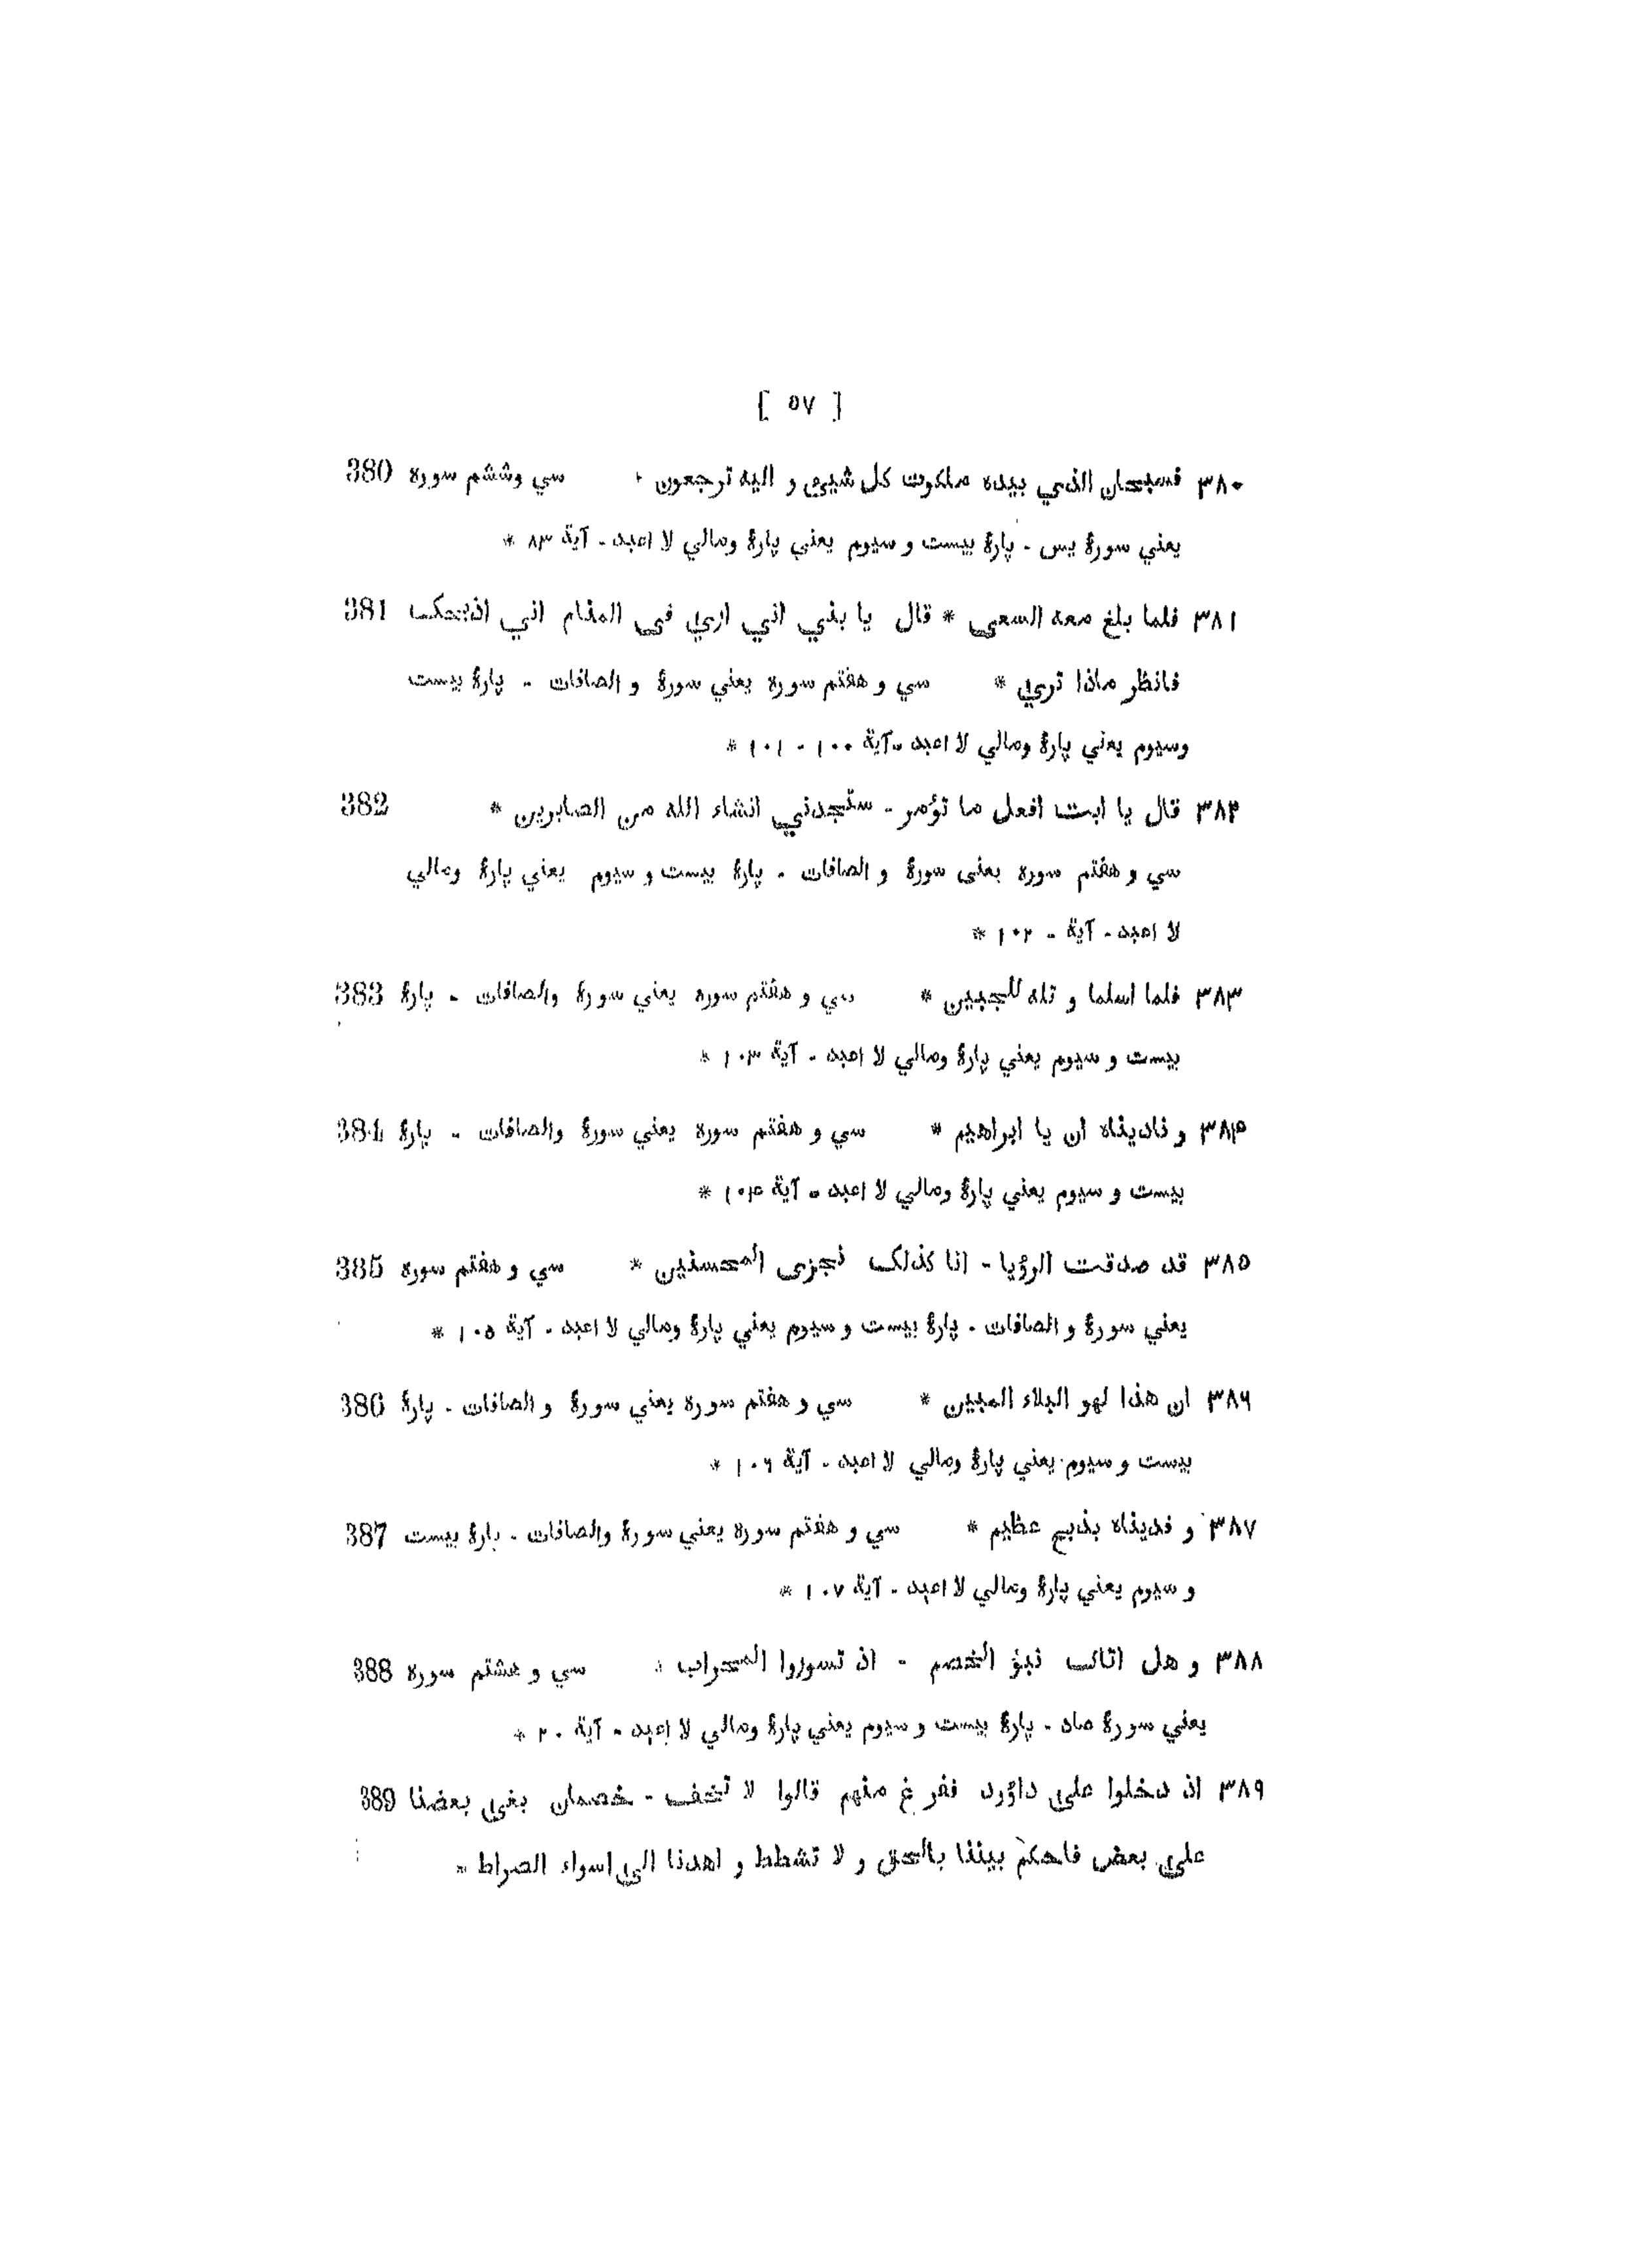 [ ٥٧ ]
٣٨٠ فسبحان الذي بيده ملكوت كل شيئ و اليه ترجعون * سي وششم سوره 380
يعني سورهٔ يس - پارهٔ بيست و سيوم يعني پارهٔ ومالي لا اعبد - آية ٨٣ *
٣٨١ فلما بلغ معه السعي * قال يا بني اني اري في المنام اني اذبحك 381
فانظر ماذا تري * سي و هفتم سوره يعني سورهٔ و الصافات - پارهٔ بيست
وسيوم يعني پارهٔ ومالي لا اعبد - آية ١٠٠ - ١٠١ *
٣٨٢ قال يا ابت افعل ما تؤمر - ستجدني انشاء الله من الصابرين * 382
سي و هفتم سوره يعنى سورهٔ و الصافات - پارهٔ بيست و سيوم يعني پارهٔ ومالي
لا اعبد - آية - ١٠٢ *
٣٨٣ فلما اسلما و تله للجبين * سي و هفتم سوره يعني سورهٔ والصافات - پارهٔ 383
بيست و سيوم يعني پارهٔ ومالي لا اعبد - آية ١٠٣ *
٣٨٤ و ناديناه ان يا ابراهيم * سي و هفتم سوره يعني سورهٔ والصافات - پارهٔ 384
بيست و سيوم يعني پارهٔ ومالي لا اعبد - آية ١٠٤ *
٣٨٥ قد صدقت الرؤيا - انا كذلك نجزى المحسنين * سي و هفتم سوره 385
يعني سورهٔ و الصافات - پارهٔ بيست و سيوم يعني پارهٔ ومالي لا اعبد - آية ١٠٥ *
٣٨٦ ان هذا لهو البلاء المبين * سي و هفتم سوره يعني سورهٔ و الصافات - پارهٔ 386
بيست و سيوم يعني پارهٔ ومالي لا اعبد - آية ١٠٦ *
٣٨٧ و فديناه بذبح عظيم * سي و هفتم سوره يعني سورهٔ والصافات - پارهٔ بيست 387
و سيوم يعني پارهٔ ومالي لا اعبد - آية ١٠٧ *
٣٨٨ و هل اتاك نبؤ الخصم - اذ تسوروا المحراب * سي و هشتم سوره 388
يعني سورهٔ صاد - پارهٔ بيست و سيوم يعني پارهٔ ومالي لا اعبد - آية ٢٠ *
٣٨٩ اذ دخلوا علي داؤد ففرغ منهم قالوا لا تخف - خصمان بغي بعضنا 389
علي بعض فاحكم بيننا بالحق و لا تشطط و اهدنا الي اسواء الصراط *